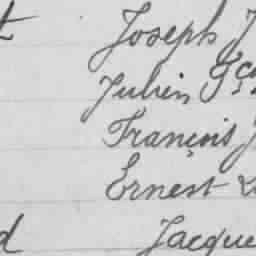 t Joseph J
Julien
François J
Ernest
d Jacque